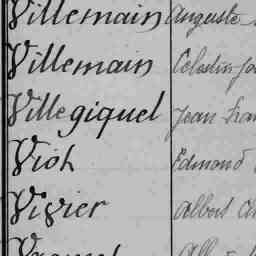 Villemain Auguste
Villemain Celestin
Villegiquel Jean
Vioh Edmond
Vivier Albert